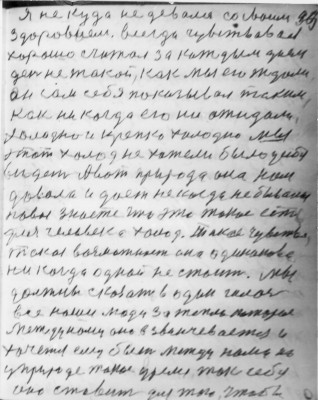 Я не куда не девался со своим
здоровьем. всегда чувствовал
хорошо считал за каждым днем
ден не такой, как мы его ждали,
он сам себя показывал таким
как ни когда его ни ожидали,
холодно и крепко холодно мы
этот холод не хотели было
видет а вот природа она нам
давала и дает не когда небывалы
знаете что это такое есть
для человека холод. такое чувство
такая возможност она одинаково
ни когда одной не стоит. мы
должны сказать в один голос
все наши люди за тепло которое
между ними оно заканчевается и
хочется ему быть между нами но
у природе такое время, так себе
оно ставит для того, чтобы